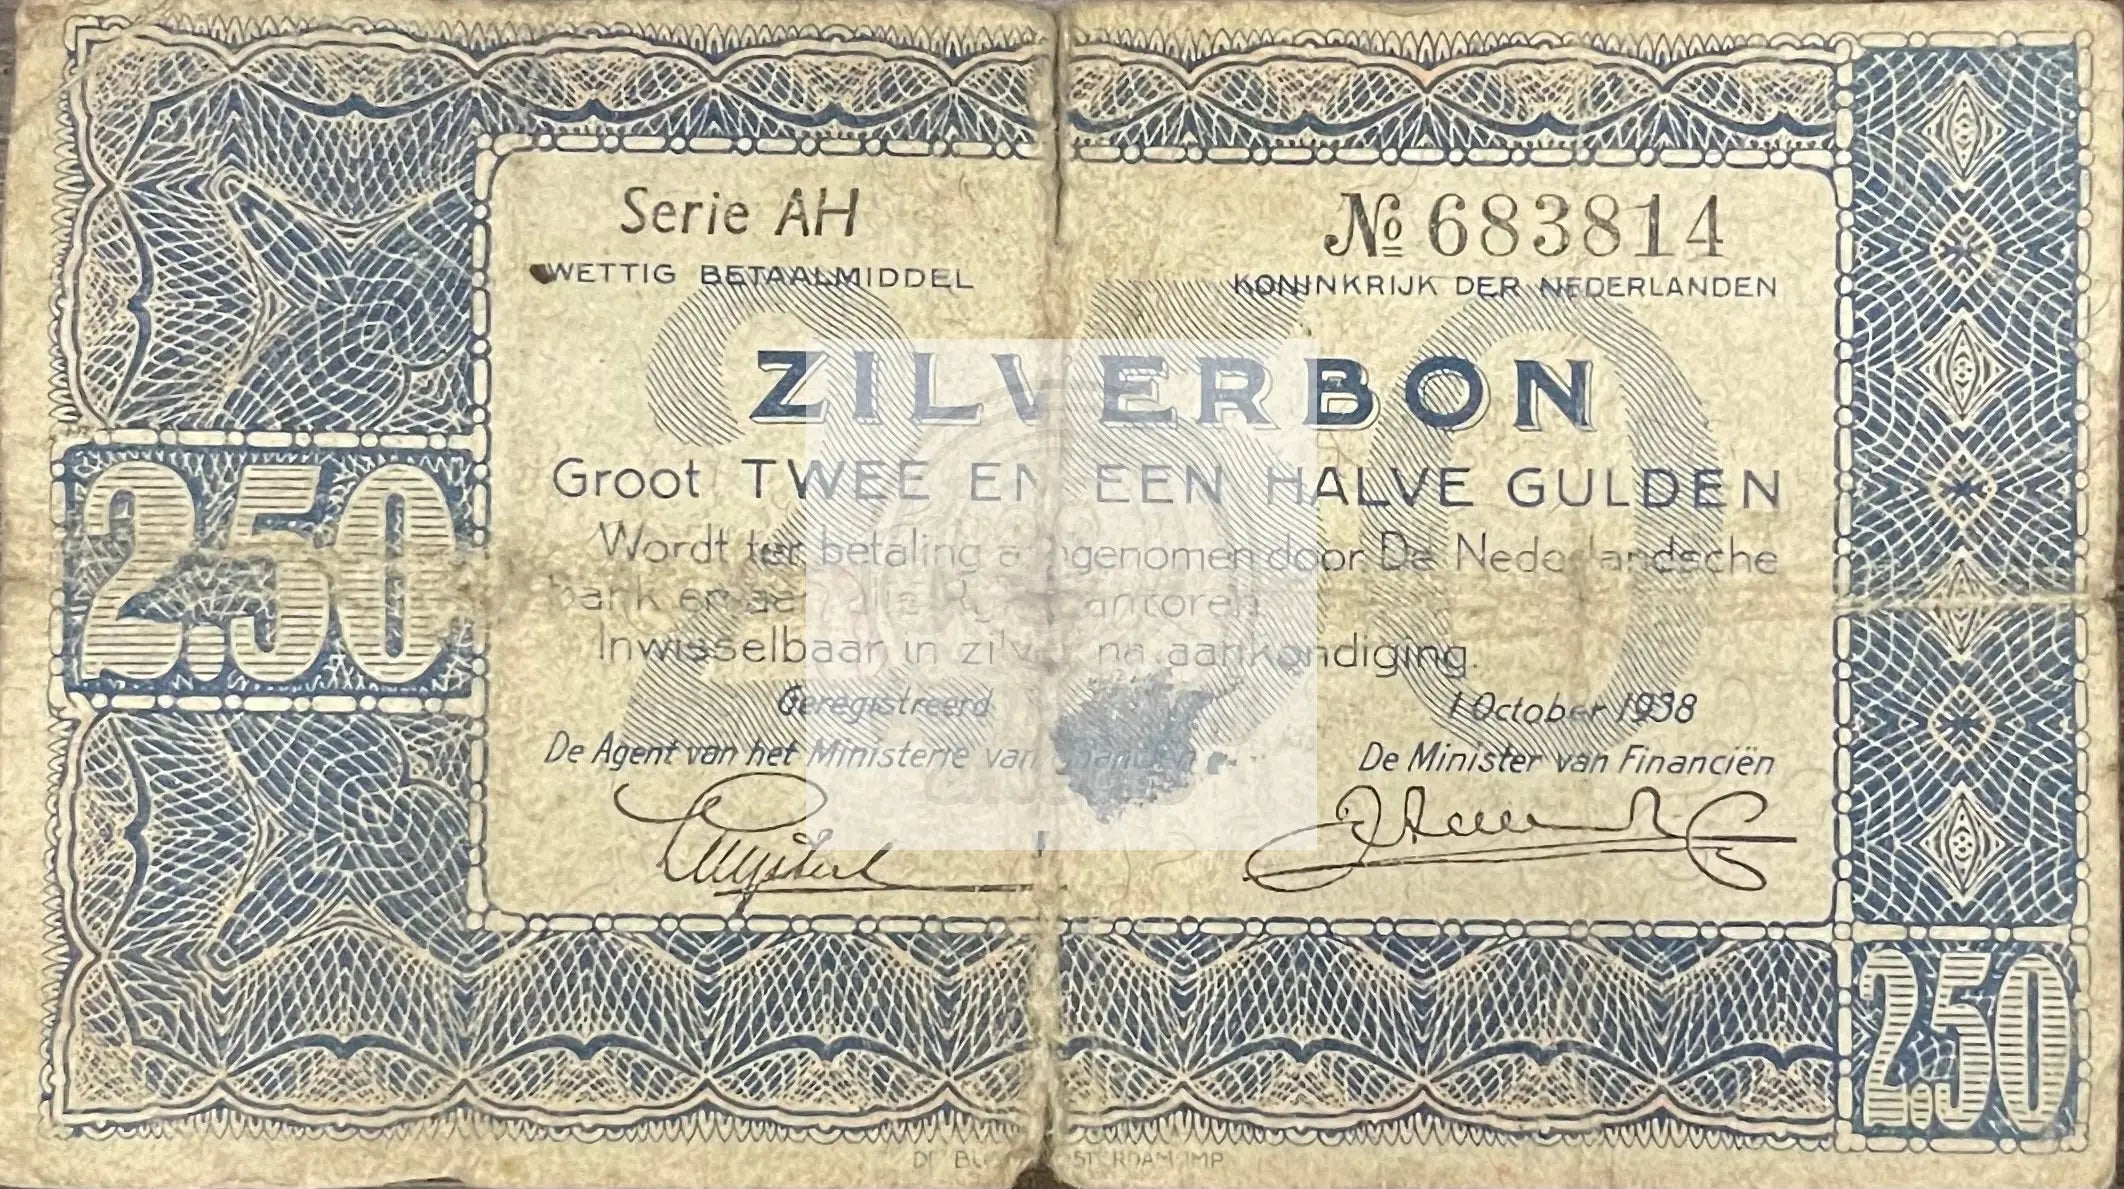 Serie AH
№ 683814
WETTIG BETAALMIDDEL
KONINKRIJK DER NEDERLANDEN
ZILVERBON
Groot TWEE EN EEN HALVE GULDEN
2.50
Wordt ter betaling aangenomen door De Nederlandsche
bank en
Inwisselbaar in zilver na aankondiging.
Geregistreerd
1 October 1938
De Agent van het Ministerie van
De Minister van Financiën
2.50